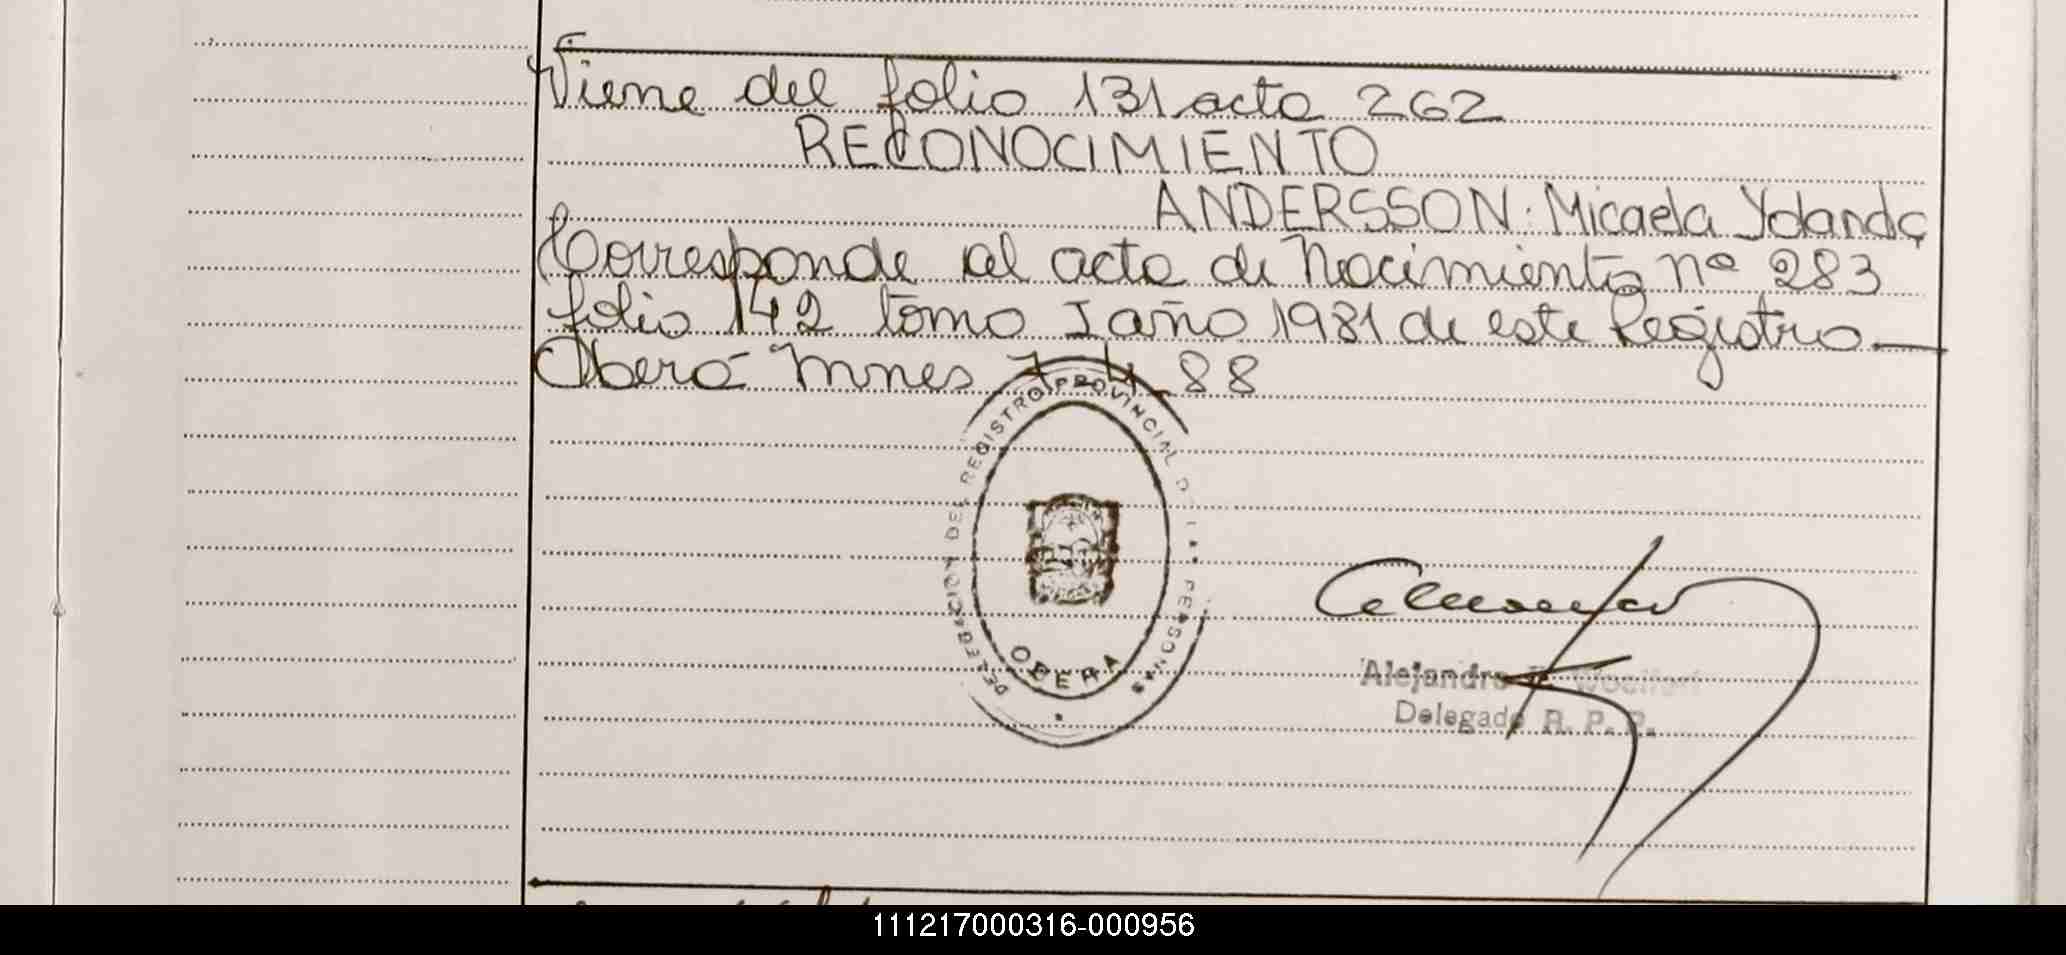 Viene del folio 131 acta 262
RECONOCIMIENTO
ANDERSSON: Micaela Yolanda
Corresponde al acta de Nacimiento nº 283
folio 142 tomo I año 1981 de este Registro.—
Oberá Mnes 7-4-88
DELEGACION DEL REGISTRO PROVINCIAL D LAS PERSONAS
OBERA
Alejandro
Delegado R. P. P.
111217000316-000956